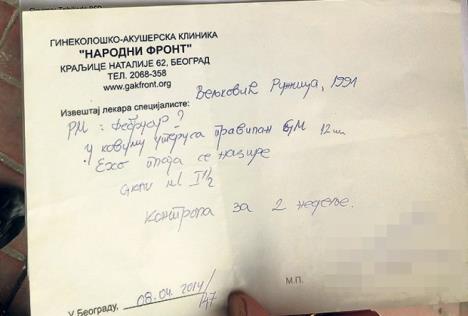 ГИНЕКОЛОШКО-АКУШЕРСКА КЛИНИКА
"НАРОДНИ ФРОНТ"
КРАЉИЦЕ НАТАЛИЈЕ 62, БЕОГРАД
ТЕЛ. 2068-358
www.gakfront.org
Вељковић Ружица, 1991
Извештај лекара специјалисте:
РМ: Фебруар?
У кавуму утеруса правилан GM 12 mm
Ехо плода се назире
Контрола за 2 недеље.
08.04.2014
У Београду,
М.П.